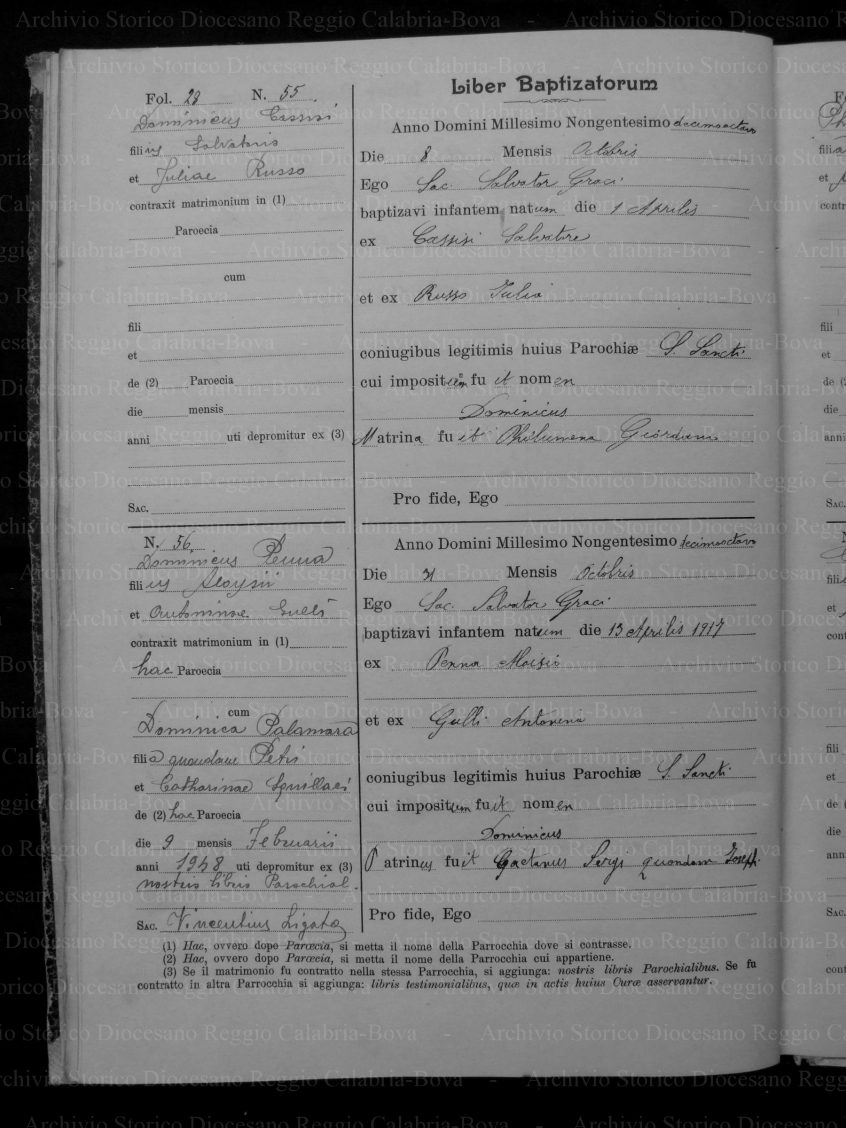 Liber Baptizatorum
Fol. 28 N. 55
Dominicus Cassisi
filius Salvatoris
et Juliae Russo
contraxit matrimonium in (1)
Paroecia
cum
fili
et
de (2) Paroecia
die mensis
anni uti depromitur ex (3)
Sac.
Anno Domini Millesimo Nongentesimo decimooctavo
Die 8 Mensis Octobris
Ego Sac. Salvator Graci
baptizavi infantem natum die 1 Aprilis
ex Cassisi Salvatore
et ex Russo Julia
coniugibus legitimis huius Parochiæ S. Sancti
cui impositum fuit nomen
Dominicus
Matrina fuit Philumena Giordano
Pro fide, Ego
N. 56
Dominicus Penna
filius Aloysii
et Antoninae Gullì
contraxit matrimonium in (1)
hac Paroecia
cum
Dominica Palamara
filia quondam Petri
et Catharinae Squillaci
de (2) hac Paroecia
die 9 mensis Februarii
anni 1948 uti depromitur ex (3)
nostris libris Parochial.
Sac. Vincentius Ligato
Anno Domini Millesimo Nongentesimo decimooctavo
Die 31 Mensis Octobris
Ego Sac. Salvator Graci
baptizavi infantem natum die 13 Aprilis 1917
ex Penna Aloisio
et ex Gulli Antonina
coniugibus legitimis huius Parochiæ S. Sancti
cui impositum fuit nomen
Dominicus
Patrinus fuit Gaetanus Sergi quondam Joseph.
Pro fide, Ego
(1) Hac, ovvero dopo Parœcia, si metta il nome della Parrocchia dove si contrasse.
(2) Hac, ovvero dopo Parœcia, si metta il nome della Parrocchia cui appartiene.
(3) Se il matrimonio fu contratto nella stessa Parrocchia, si aggiunga: nostris libris Parochialibus. Se fu
contratto in altra Parrocchia si aggiunga: libris testimonialibus, quæ in actis huius Curæ asservantur.
Archivio Storico Diocesano Reggio Calabria-Bova